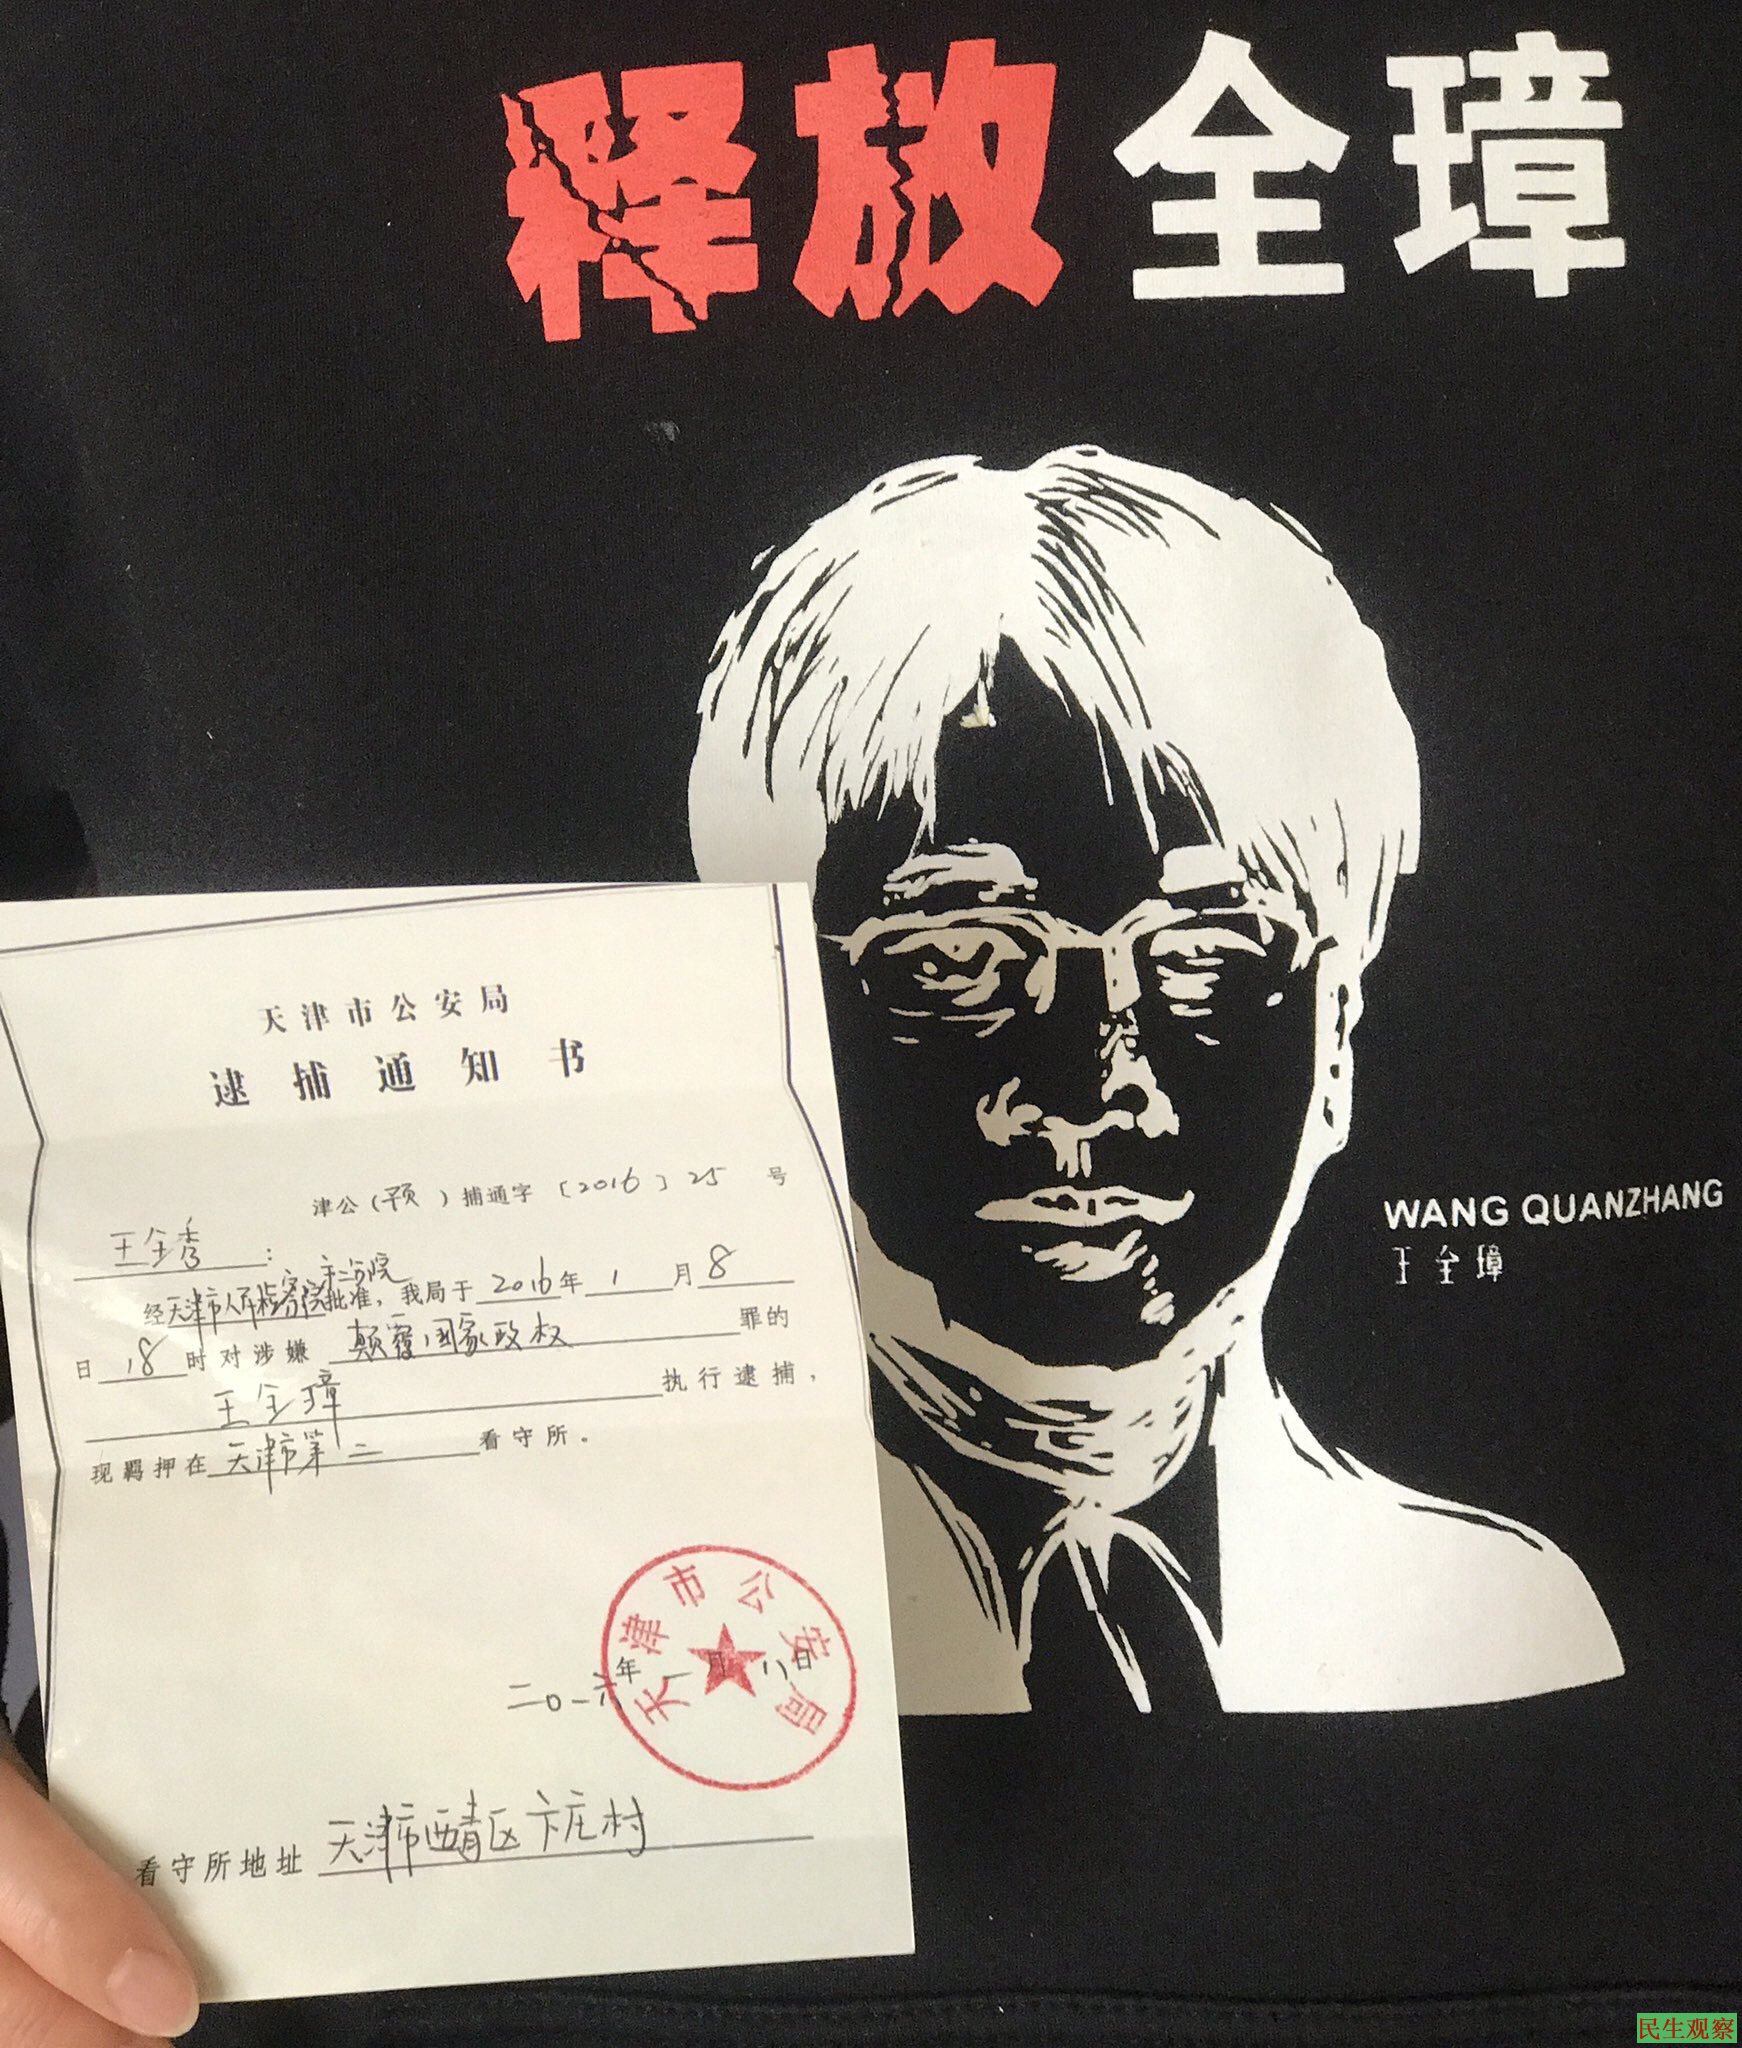 释放全璋
WANG QUANZHANG
王全璋
天津市公安局
逮捕通知书
津公(预)捕通字〔2016〕25号
王全秀:
经天津市人民检察院第二分院批准,我局于2016年1月8
日18时对涉嫌颠覆国家政权罪的
王全璋执行逮捕,
现羁押在天津市第二看守所。
天津市公安局
二〇一六年一月八日
看守所地址天津市西青区卞庄村
民生观察